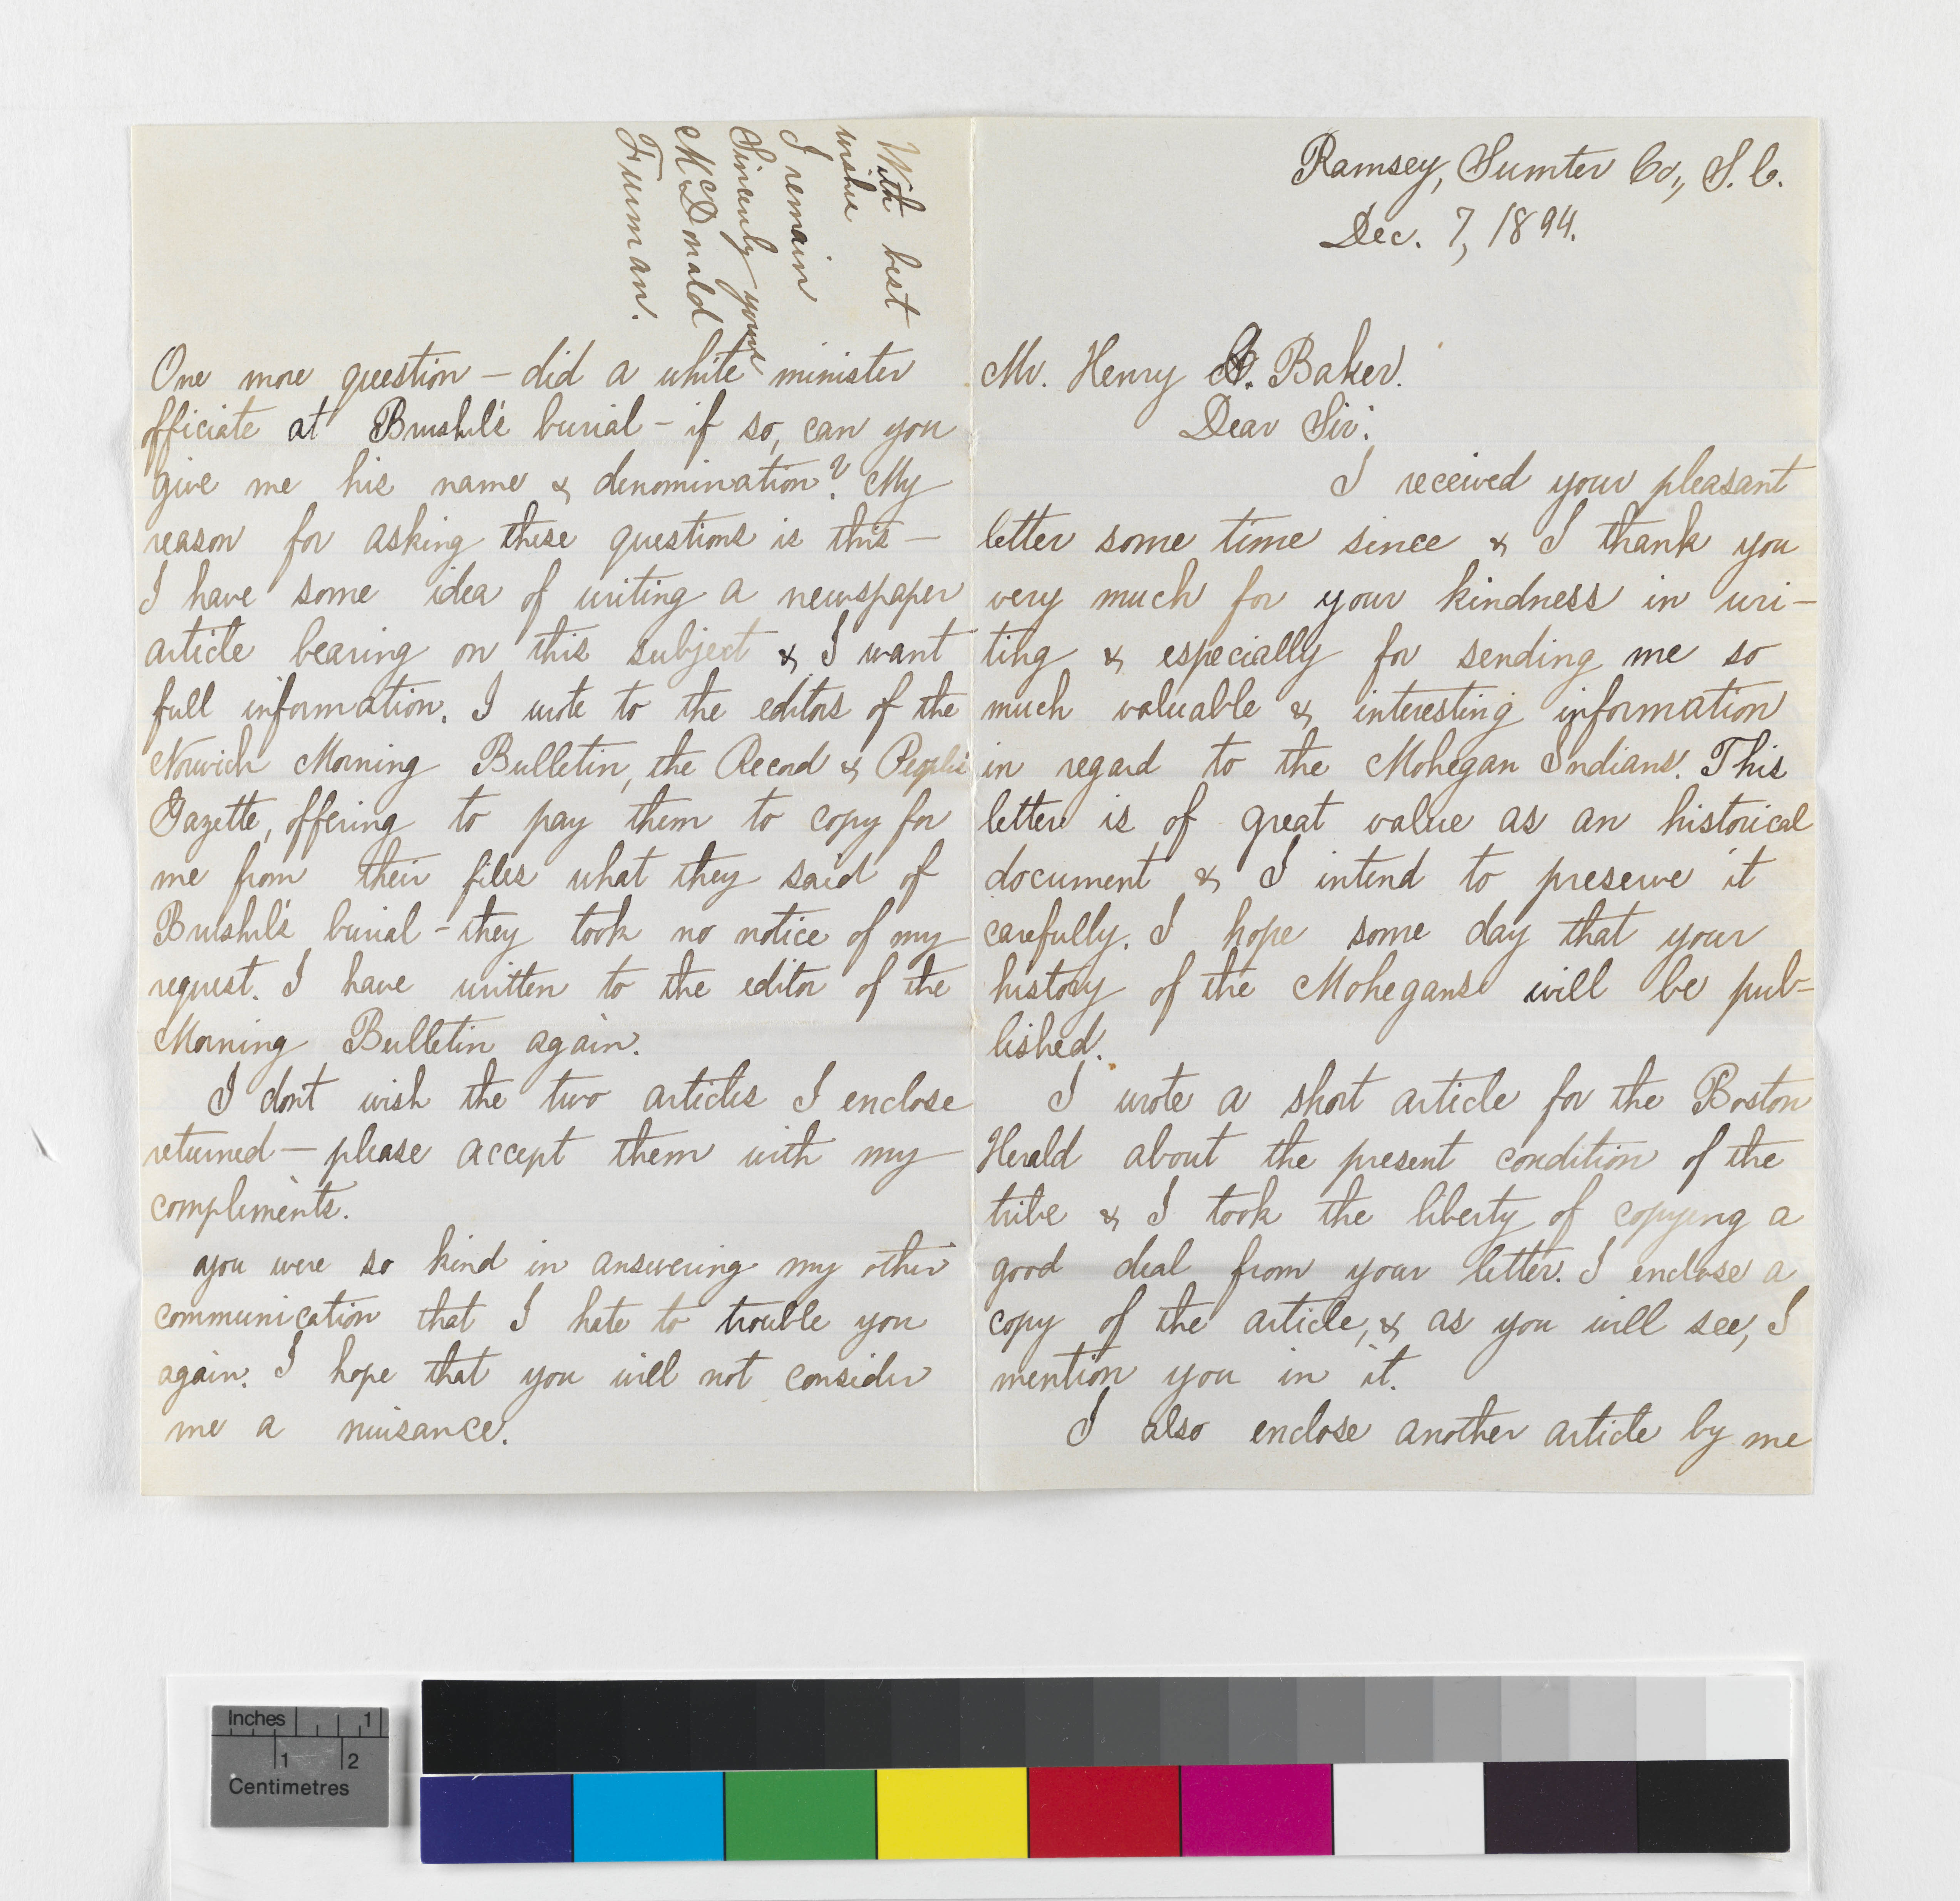 Ramsey, Sumter Co., S. C.
Dec. 7, 1894.
Mr. Henry A. Baker.
Dear Sir:
I received your pleasant
letter some time since & I thank you
very much for your kindness in wri-
ting & especially for sending me so
much valuable & interesting information
in regard to the Mohegan Indians. This
letter is of great value as an historical
document & I intend to preserve it
carefully. I hope some day that your
history of the Mohegans will be pub-
lished.
I wrote a short article for the Boston
Herald about the present condition of the
tribe & I took the liberty of copying a
good deal from your letter. I enclose a
copy of the article, & as you will see, I
mention you in it.
I also enclose another article by me
One more question – did a white minister
officiate at Brushil's burial – if so, can you
give me his name & denomination? My
reason for asking these questions is this –
I have some idea of writing a newspaper
article bearing on this subject & I want
full information. I wrote to the editors of the
Norwich Morning Bulletin, the Record & People's
Gazette, offering to pay them to copy for
me from their files what they said of
Brushil's burial – they took no notice of my
request. I have written to the editor of the
Morning Bulletin again.
I don't wish the two articles I enclose
returned – please accept them with my
compliments.
You were so kind in answering my other
communication that I hate to trouble you
again. I hope that you will not consider
me a nuisance.
With best
wishes
I remain
Sincerely yours
McDonald
Furman.
Inches 1
1 2
Centimetres